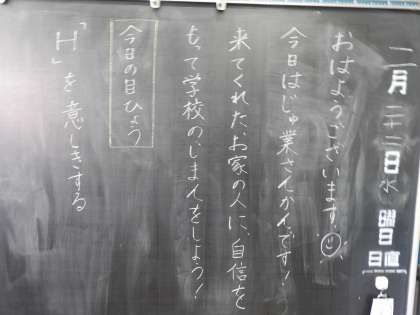 二月二十二日水曜日
日直
おはようございます
今日はじゅ業さんかんです！
来てくれた、お家の人に、自信を
もって学校のじまんをしよう！
今日の目ひょう
「H」を意しきする